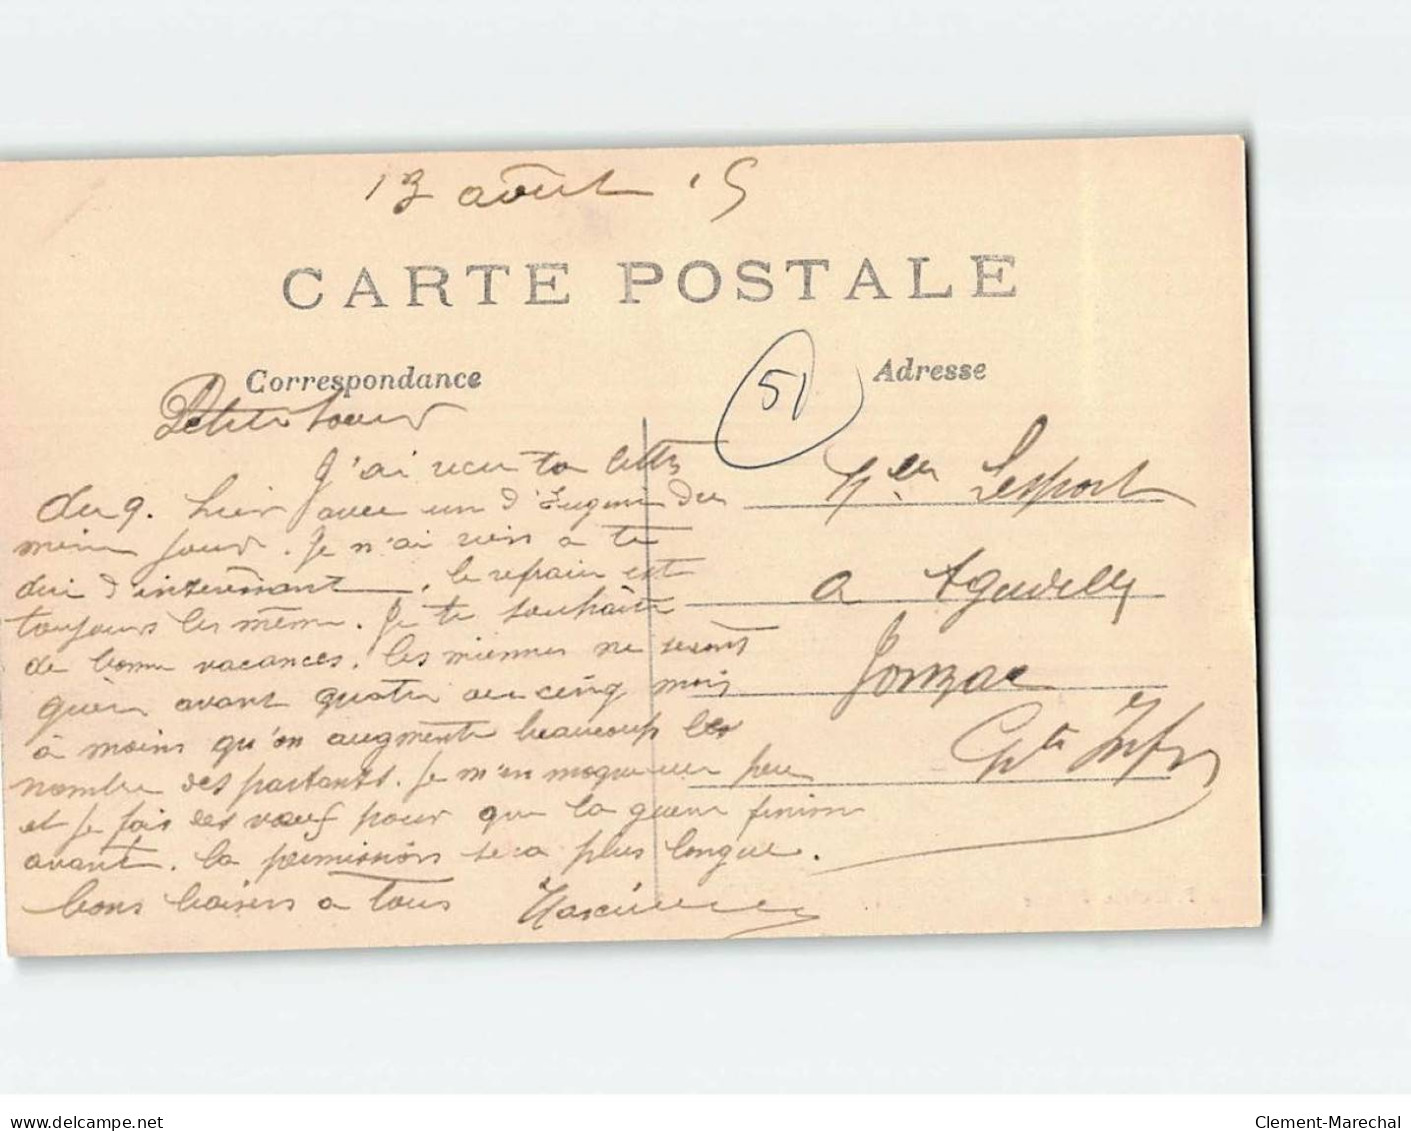 13 août 15
CARTE POSTALE
Correspondance
Adresse
51
Petite Soeur
J'ai reçu ta lettre
du 9. hier avec un d'Eugène du
même jour. Je n'ai rien a te
dire d'intéressant, le refrain est
toujours le même. Je te souhaite
de bonne vacances. les miennes ne seront
guère avant quatre ou cinq mois
à moins qu'on augmente beaucoup le
nombre des partants. Je m'en moque un peu
et je fais des voeux pour que la guerre finisse
avant. la permission sera plus longue.
bons baisers a tous
Melle Lesport
a Agudelle
Jonzac
Cte Infre
delcampe.net
Clement-Marechal